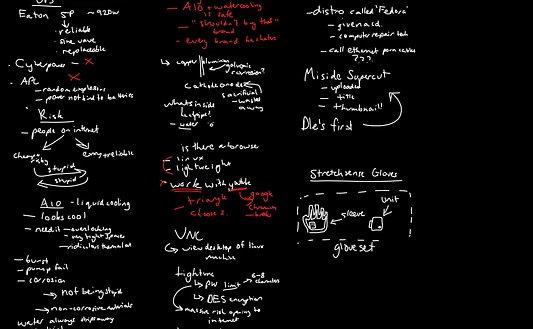 UPS
Eaton 5P ~920w
reliable
sine wave
replaceable
Cyberpower - X
APC X
- random explosions
- power not kind to batteries
Risk
- people on internet
stupid
stupid
AIO - liquid cooling
- looks cool
- need it - overclocking
- ridiculous thermals
- burst
- pump fail
- corrosion
→ not being stupid
→ non-corrosive materials
water always strips away
- AIO + watercooling is safe
- "shouldn't buy that" brand
- every brand has haters
copper aluminum
galvanic corrosion?
cathode anode
sacrificial
- wasted away
whats inside
- water
is there a browse
- linux
- lightweight
* work with
- triangle
choose 2.
VNC
↳ view desktop of linux machine
tightvnc
→ PW limit → 6-8 characters
→ DES encryption
→ massive risk opening to internet
- distro called 'Fedora'
- given a cd.
- computer repair tech
- call ethernet
???
Miside Supercut
- uploaded
- title
- thumbnail!
Dle's first
Stretchsense Gloves
unit
sleeve
gloveset